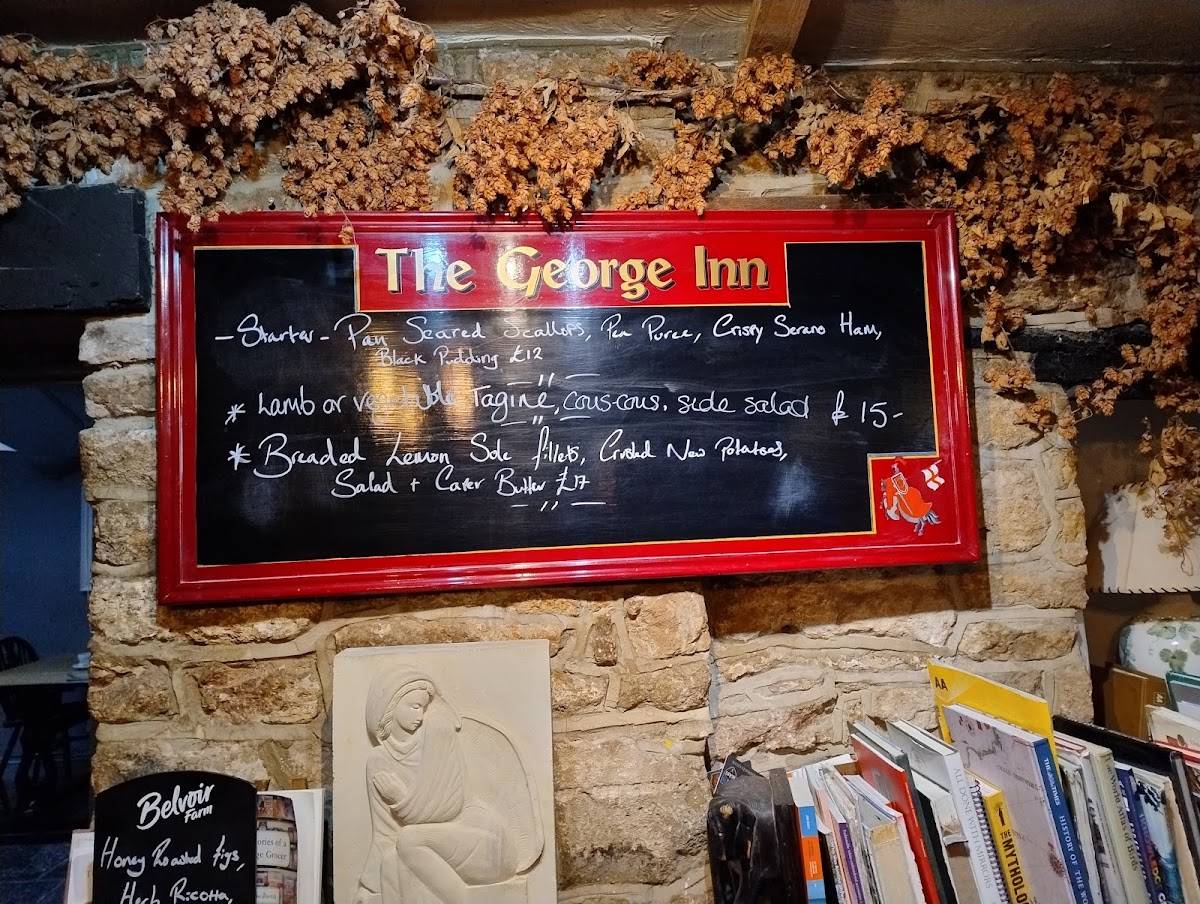 The George Inn
- Starter - Pan Seared Scallops, Pea Puree, Crispy Serano Ham,
Black Pudding £12
* Lamb or vegetable Tagine, cous-cous, side salad £15-
* Breaded Lemon Sole fillets, Crushed New Potatoes,
Salad + Caper Butter £17
Belvoir
Farm
Honey Roasted figs,
Herb Ricotta,
AA
THE TIMES
HISTORY OF THE WO
ALL DONE WITH MIRRORS
THE MYTHOLO